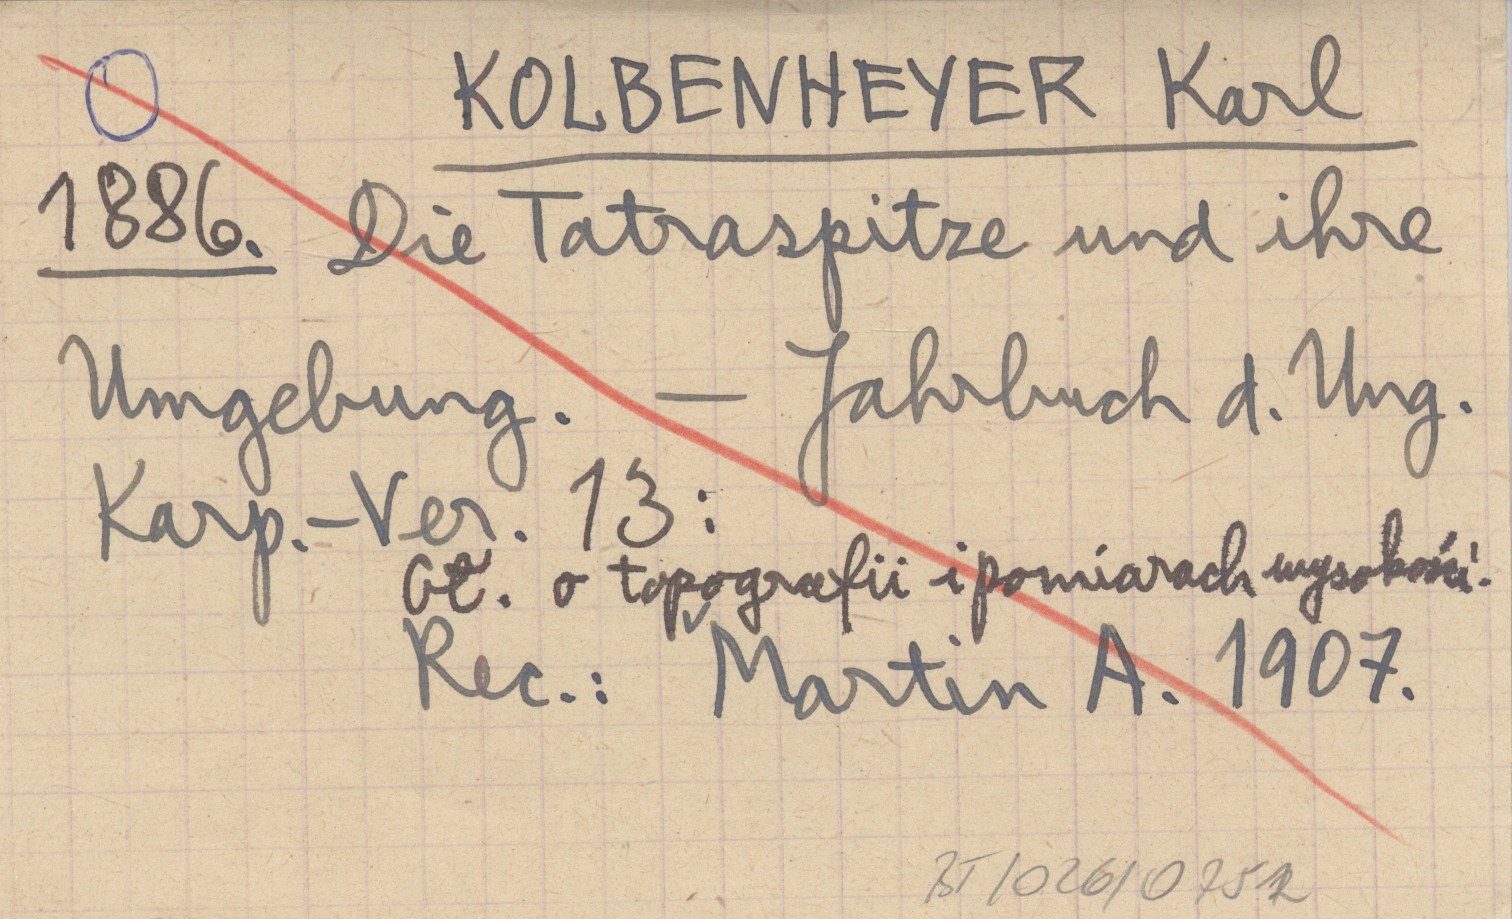 KOLBENHEYER Karl
1886. Die Tatraspitze und ihre
Umgebung. — Jahrbuch d. Ung.
Karp.-Ver. 13:
Gł. o topografii i pomiarach wysokości.
Rec.: Martin A. 1907.
BT/026/0752